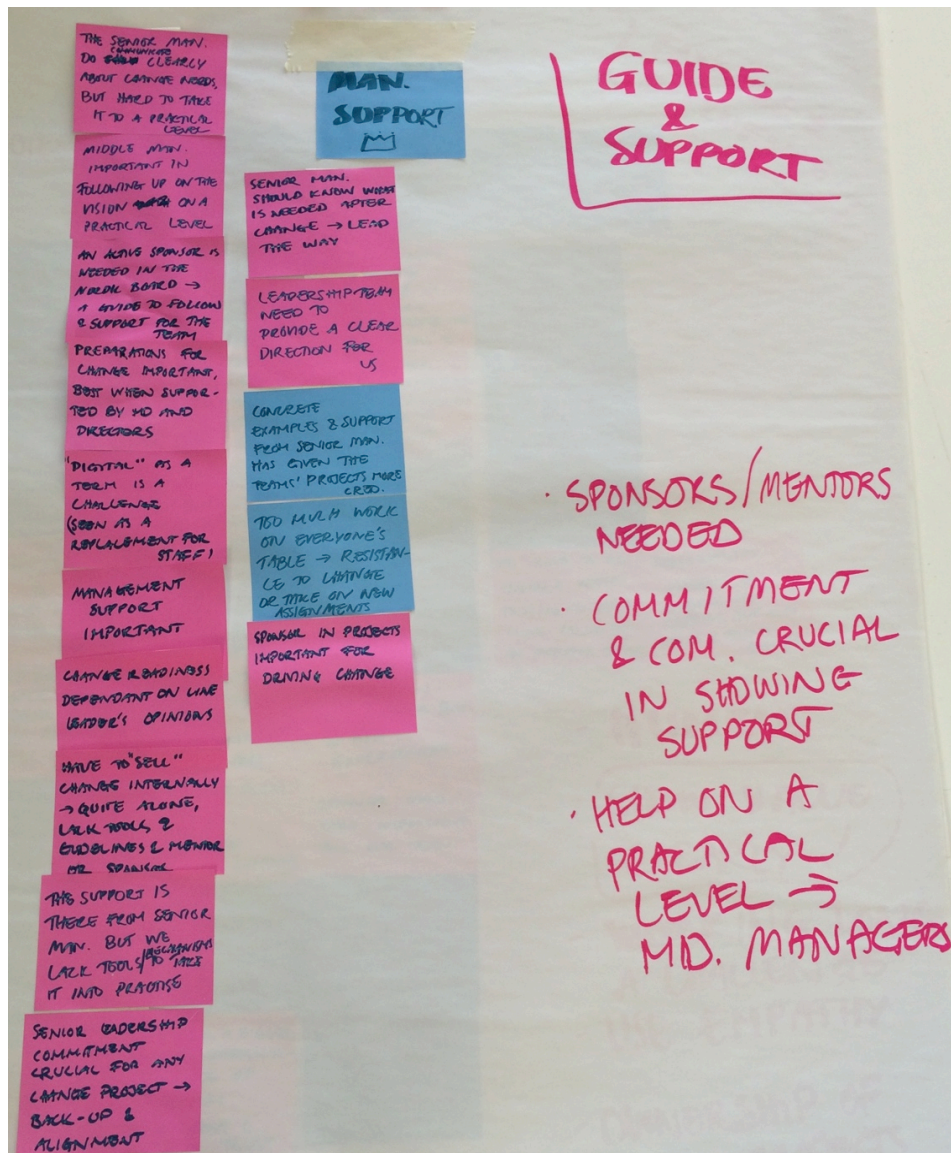 THE SENIOR MAN.
DO COMMUNICATE CLEARLY
ABOUT CHANGE NEEDS,
BUT HARD TO TAKE
IT TO A PRACTICAL
LEVEL
MIDDLE MAN.
IMPORTANT IN
FOLLOWING UP ON THE
VISION ON A
PRACTICAL LEVEL
AN ACTIVE SPONSOR IS
NEEDED IN THE
NORDIC BOARD →
A GUIDE TO FOLLOW
& SUPPORT FOR THE
TEAM
PREPARATIONS FOR
CHANGE IMPORTANT,
BEST WHEN SUPPOR-
TED BY MD AND
DIRECTORS
"DIGITAL" AS A
TERM IS A
CHALLENGE
(SEEN AS A
REPLACEMENT FOR
STAFF!
MANAGEMENT
SUPPORT
IMPORTANT
CHANGE READINESS
DEPENDANT ON LINE
LEADER'S OPINIONS
HAVE TO "SELL"
CHANGE INTERNALLY
→ QUITE ALONE,
LACK TOOLS &
GUIDELINES & MENTOR
OR SPONSOR
THE SUPPORT IS
THERE FROM SENIOR
MAN. BUT WE
LACK TOOLS/ TO TAKE
IT INTO PRACTISE
SENIOR LEADERSHIP
COMMITMENT
CRUCIAL FOR ANY
CHANGE PROJECT →
BACK-UP &
ALIGNMENT
MAN.
SUPPORT
SENIOR MAN.
SHOULD KNOW WHAT
IS NEEDED AFTER
CHANGE → LEAD
THE WAY
LEADERSHIP TEAM
NEED TO
PROVIDE A CLEAR
DIRECTION FOR
US
CONCRETE
EXAMPLES & SUPPORT
FROM SENIOR MAN.
HAS GIVEN THE
TEAMS' PROJECTS MORE
CRED.
TOO MUCH WORK
ON EVERYONE'S
TABLE → RESISTAN-
CE TO CHANGE
OR TAKE ON NEW
ASSIGNMENTS
SPONSOR IN PROJECTS
IMPORTANT FOR
DRIVING CHANGE
GUIDE
&
SUPPORT
· SPONSORS/MENTORS
NEEDED
· COMMITMENT
& COM. CRUCIAL
IN SHOWING
SUPPORT
· HELP ON A
PRACTICAL
LEVEL →
MD. MANAGERS